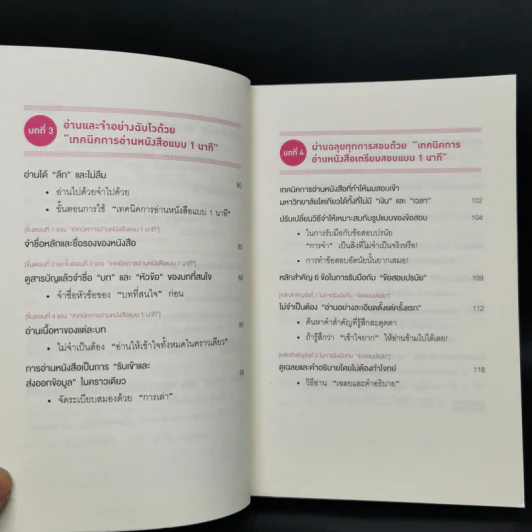 บทที่ 3
อ่านและจำอย่างฉับไวด้วย
"เทคนิคการอ่านหนังสือแบบ 1 นาที"
อ่านได้ "ลึก" และไม่ลืม
• อ่านไปด้วยจำไปด้วย
• ขั้นตอนการใช้ "เทคนิคการอ่านหนังสือแบบ 1 นาที"
[ขั้นตอนที่ 1 ของ "เทคนิคการอ่านหนังสือแบบ 1 นาที"]
จำชื่อหลักและชื่อรองของหนังสือ
[ขั้นตอนที่ 2 และขั้นตอนที่ 3 ของ "เทคนิคการอ่านหนังสือแบบ 1 นาที"]
ดูสารบัญแล้วจำชื่อ "บท" และ "หัวข้อ" ของบทที่สนใจ
• จำชื่อหัวข้อของ "บทที่สนใจ" ก่อน
[ขั้นตอนที่ 4 ของ "เทคนิคการอ่านหนังสือแบบ 1 นาที"]
อ่านเนื้อหาของแต่ละบท
• ไม่จำเป็นต้อง "อ่านให้เข้าใจทั้งหมดในคราวเดียว"
การอ่านหนังสือเป็นการ "รับเข้าและ
ส่งออกข้อมูล" ในคราวเดียว
• จัดระเบียบสมองด้วย "การเล่า"
บทที่ 4
ผ่านฉลุยทุกการสอบด้วย "เทคนิคการ
อ่านหนังสือเตรียมสอบแบบ 1 นาที"
เทคนิคการอ่านหนังสือที่ทำให้ผมสอบเข้า
มหาวิทยาลัยโตเกียวได้ทั้งที่ไม่มี "เงิน" และ "เวลา" 102
ปรับเปลี่ยนวิธีจำให้เหมาะสมกับรูปแบบของข้อสอบ 104
• ในการรับมือกับข้อสอบปรนัย
"การจำ" เป็นสิ่งที่ไม่จำเป็นจริงหรือ!
• การทำข้อสอบอัตนัยนั้นยากเสมอ!
หลักสำคัญ 6 ข้อในการรับมือกับ "ข้อสอบปรนัย" 109
[หลักสำคัญข้อที่ 1 ในการรับมือกับ "ข้อสอบปรนัย"]
ไม่จำเป็นต้อง "อ่านอย่างละเอียดตั้งแต่ครั้งแรก" 112
• ค้นหาคำสำคัญที่รู้สึกสะดุดตา
• ถ้ารู้สึกว่า "เข้าใจยาก" ให้อ่านข้ามไปได้เลย!
[หลักสำคัญข้อที่ 2 ในการรับมือกับ "ข้อสอบปรนัย"]
ดูเฉลยและคำอธิบายโดยไม่ต้องทำโจทย์ 118
• วิธีอ่าน "เฉลยและคำอธิบาย"